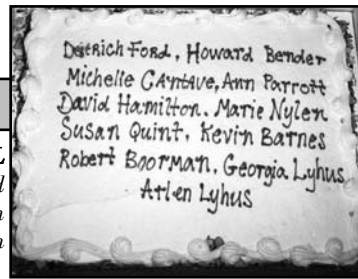 Deitrich Ford, Howard Bender
Michelle Cantave, Ann Parrott
David Hamilton, Marie Nylen
Susan Quint, Kevin Barnes
Robert Boorman, Georgia Lyhus
Arlen Lyhus